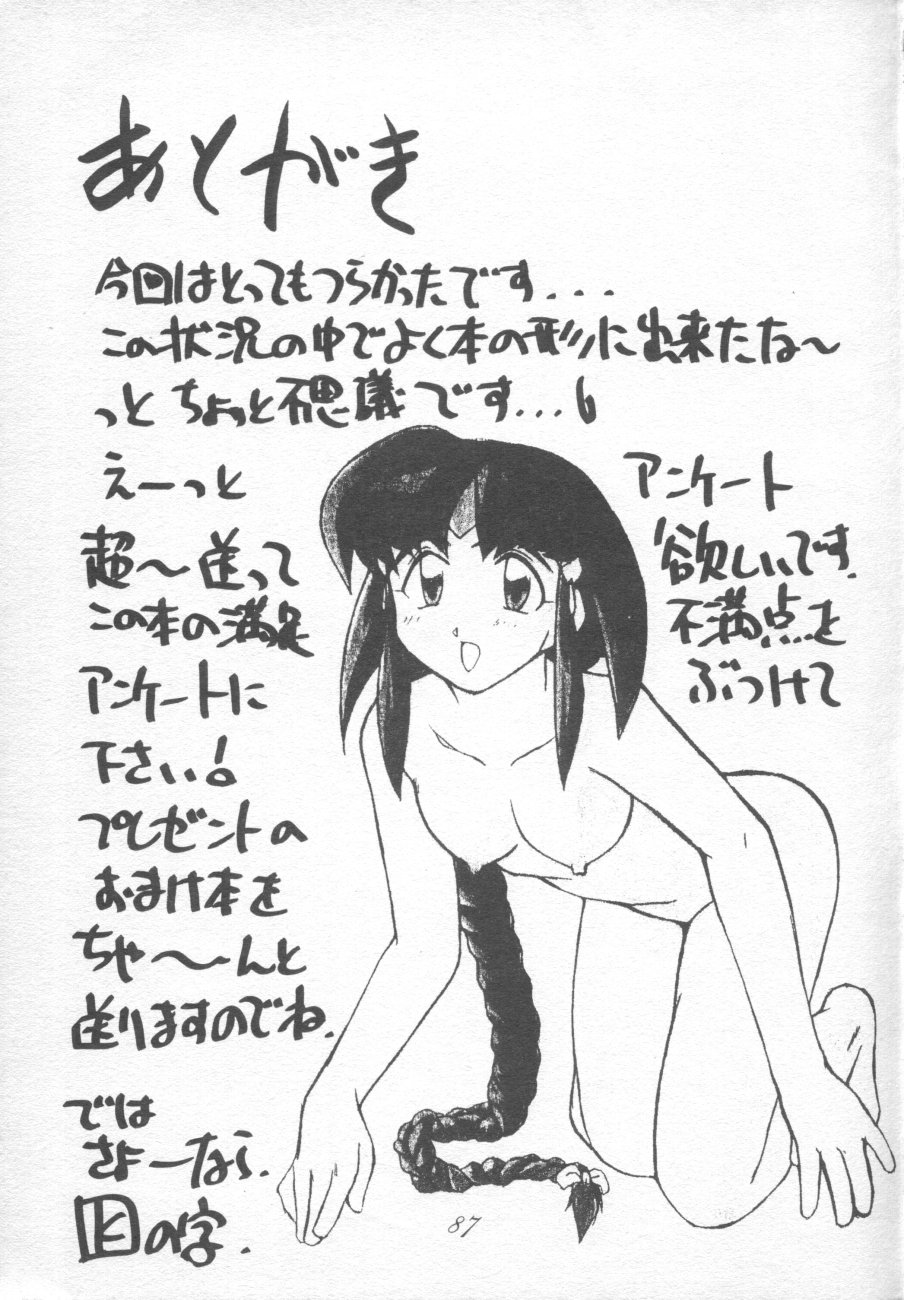 あとがき
今回はとってもつらかったです...
この状況の中でよく本の形に出来たな〜
っと ちょっと不思議です...
えーっと アンケート
超〜送って 欲しいです。
この本の満足 不満点を
アンケートに ぶつけて
下さい!
プレゼントの
おまけ本を
ちゃ〜〜んと
送りますのでね.
では
さよーなら.
の字.
87